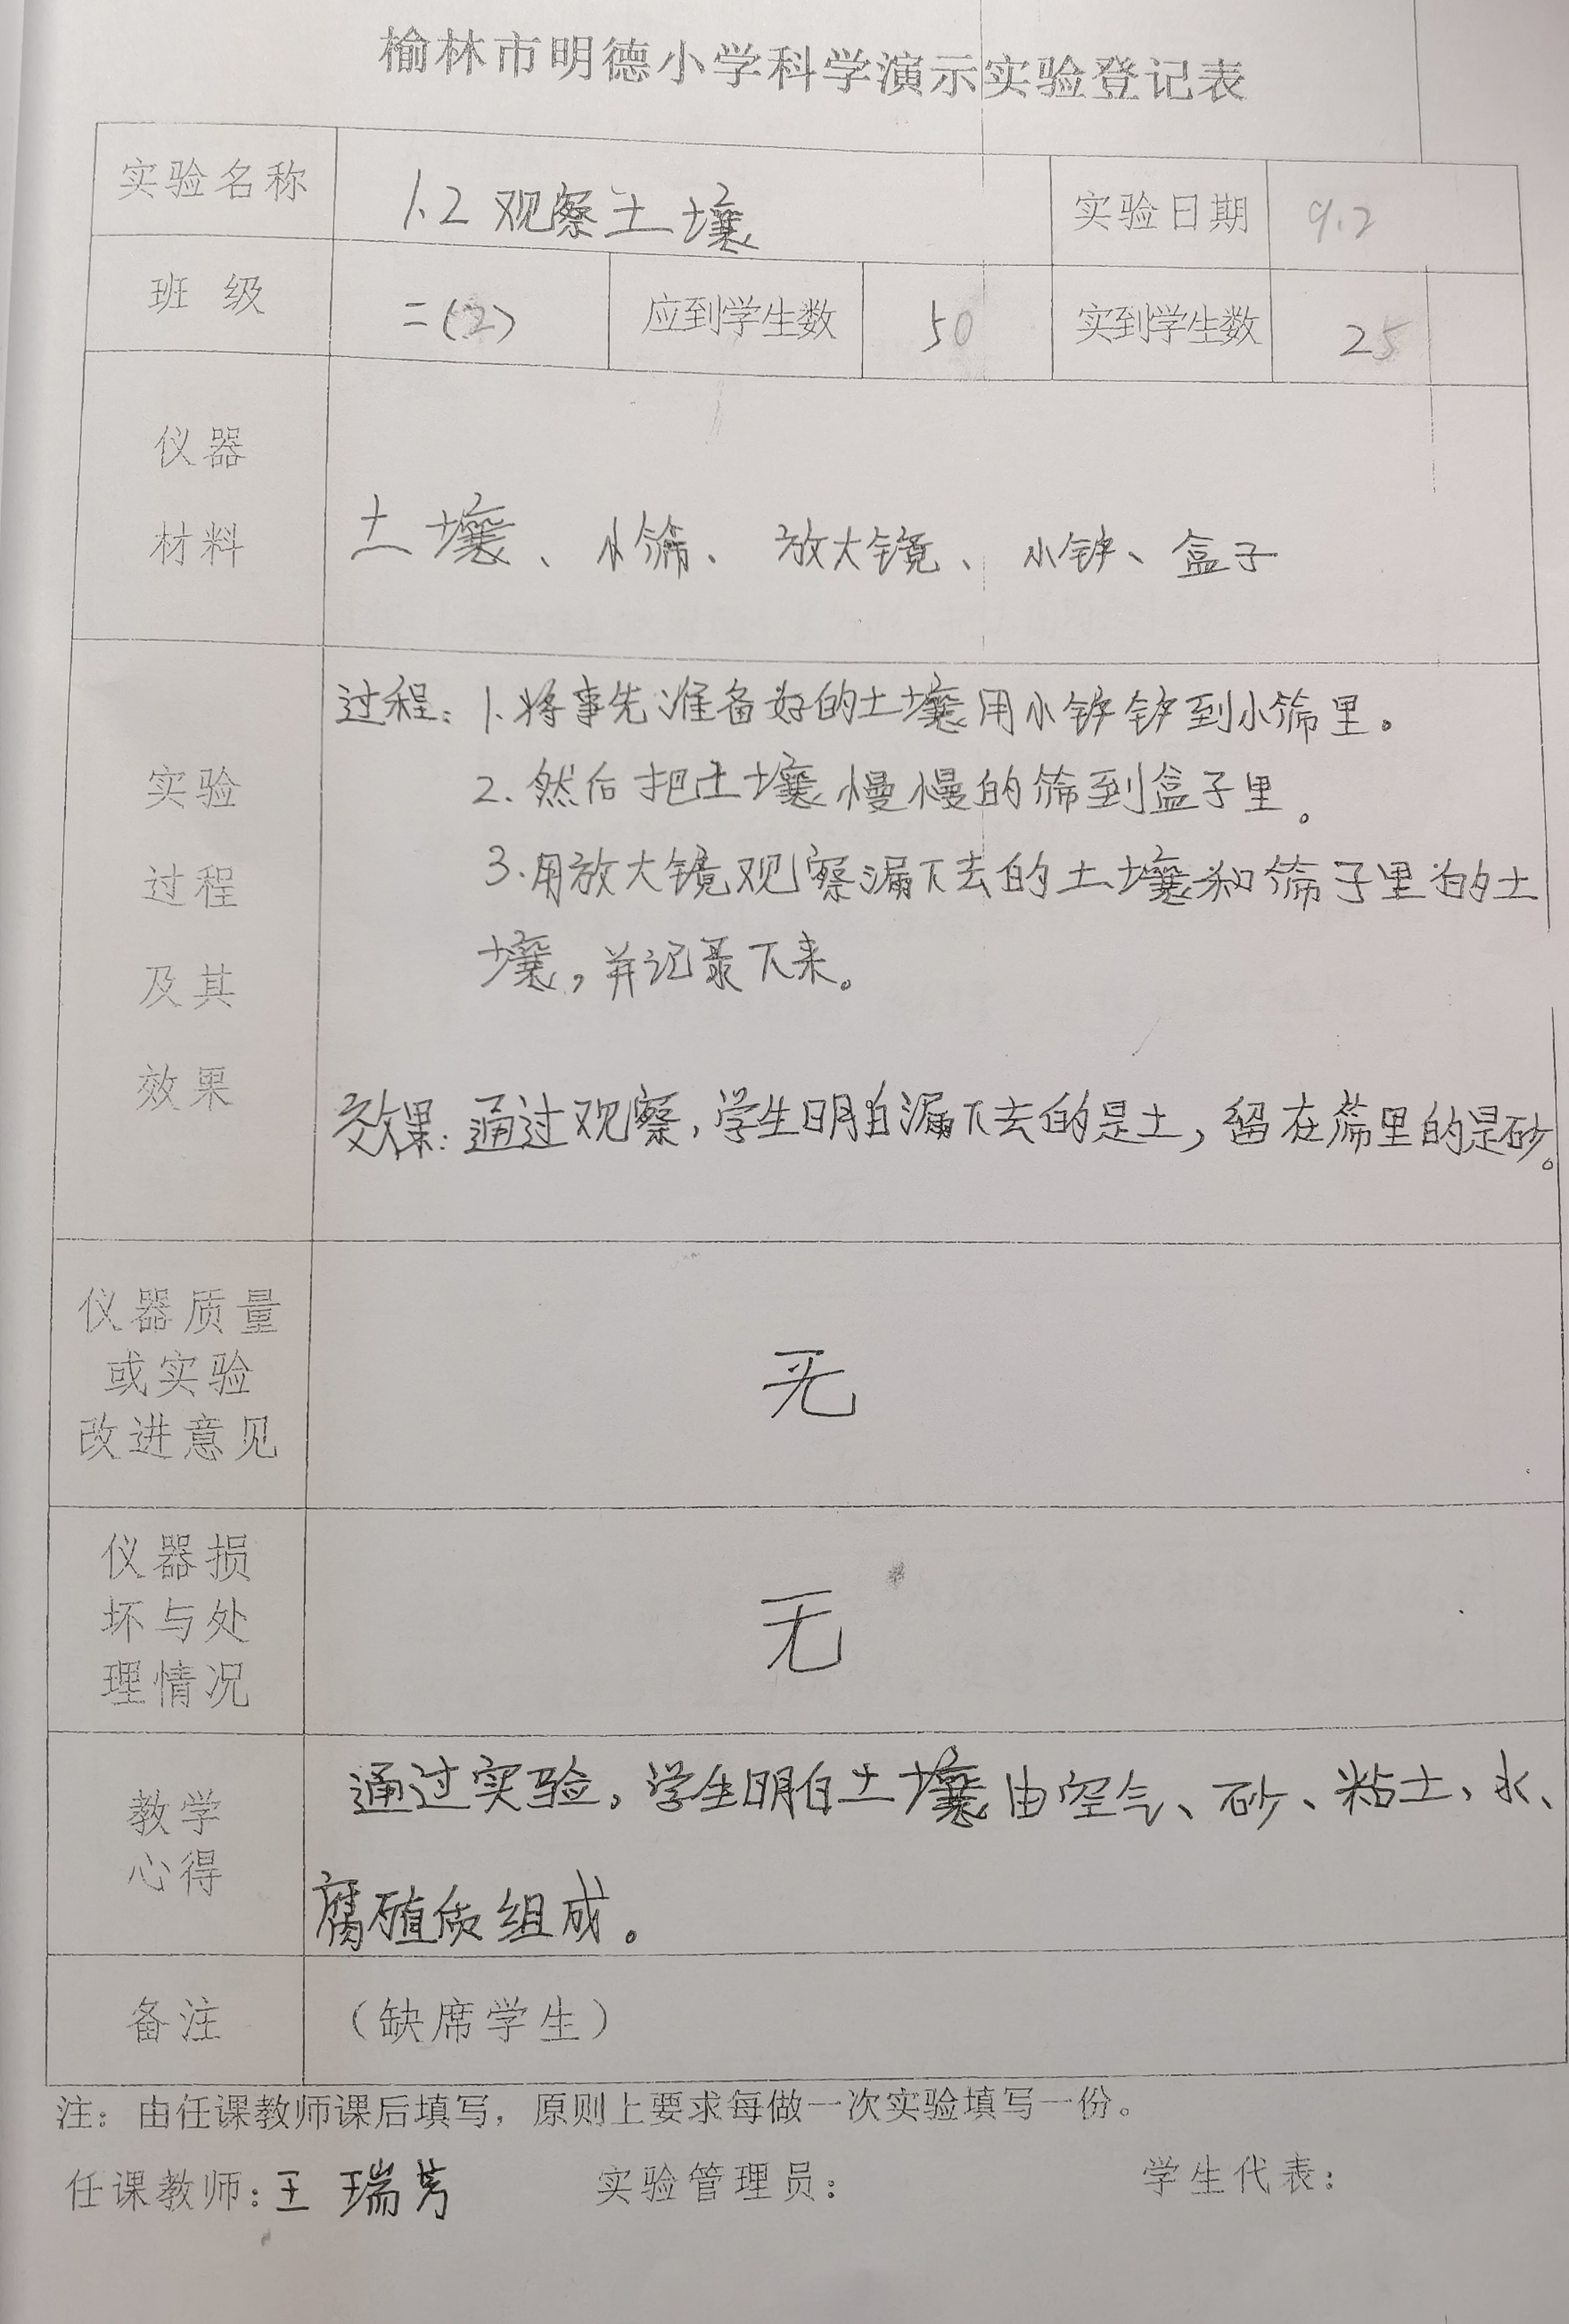 榆林市明德小学科学演示实验登记表
实验名称 1.2 观察土壤 实验日期 9.2
班 级 二(2) 应到学生数 50 实到学生数 25
仪器
材料
土壤、小筛、放大镜、小铲、盒子
实验
过程
及其
效果
过程:1.将事先准备好的土壤用小铲铲到小筛里。
2.然后把土壤慢慢的筛到盒子里。
3.用放大镜观察漏下去的土壤和筛子里的土
壤,并记录下来。
效果:通过观察,学生明白漏下去的是土,留在筛里的是砂。
仪器质量
或实验
改进意见
无
仪器损
坏与处
理情况
无
教学
心得
通过实验,学生明白土壤由空气、砂、粘土、水、
腐殖质组成。
备注 (缺席学生)
注:由任课教师课后填写,原则上要求每做一次实验填写一份。
任课教师:王瑞芳 实验管理员: 学生代表: